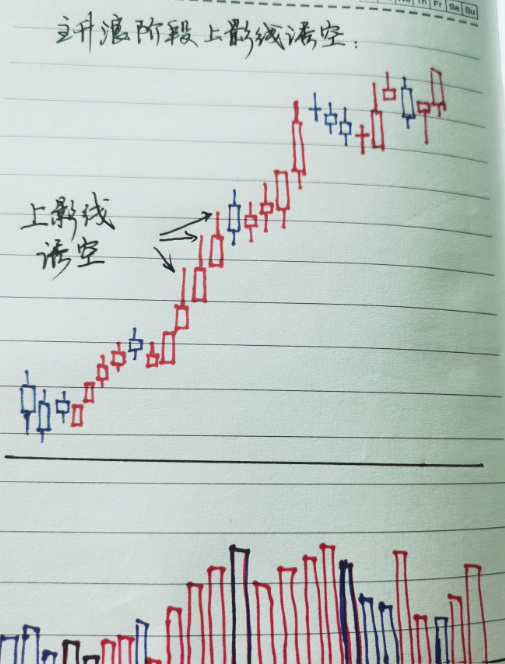 Th Fr Sa Su
主升浪阶段上影线诱空:
上影线
诱空